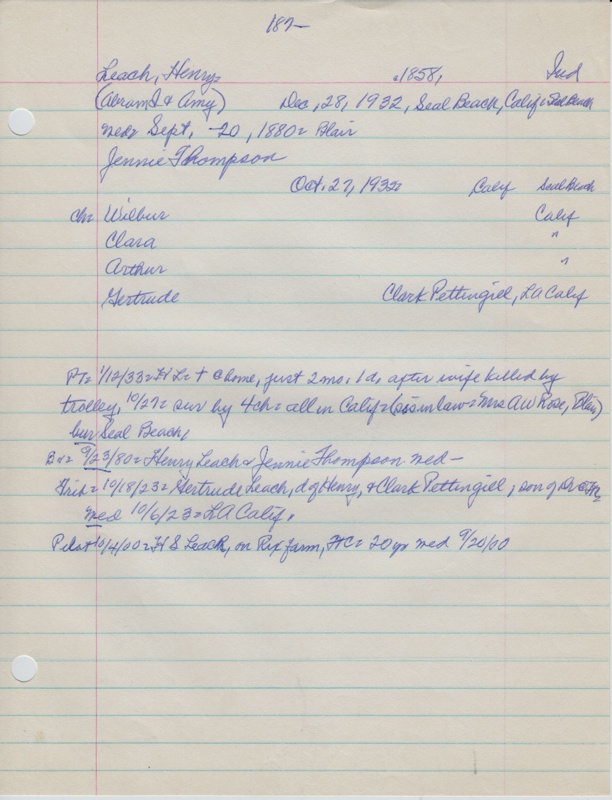 187-
Leach, Henry, 1858, Ind
(Abram I & Amy) Dec, 28, 1932, Seal Beach, Calif = Seal Beach
med= Sept, -20, 1880= Blair
Jennie Thompson
Oct. 27, 1932 Calif Seal Beach
ch= Wilbur Calif
Clara "
Arthur "
Gertrude Clark Pettingill, LA Calif
PT= 1/12/33= H L= + @ home, just 2 mo. 1 d. after wife killed by
trolley, 10/27= sur by 4 ch= all in Calif= (sis in law= Mrs A W Rose, Blair)
bur Seal Beach,
9/23/80= Henry Leach & Jennie Thompson med-
10/18/23= Gertrude Leach, d of Henry, & Clark Pettingill, son of Dr
med 10/6/23= LA Calif.
Pilot 10/4/00= H S Leach, on Rix farm, FTC= 20 yr med 9/20/00